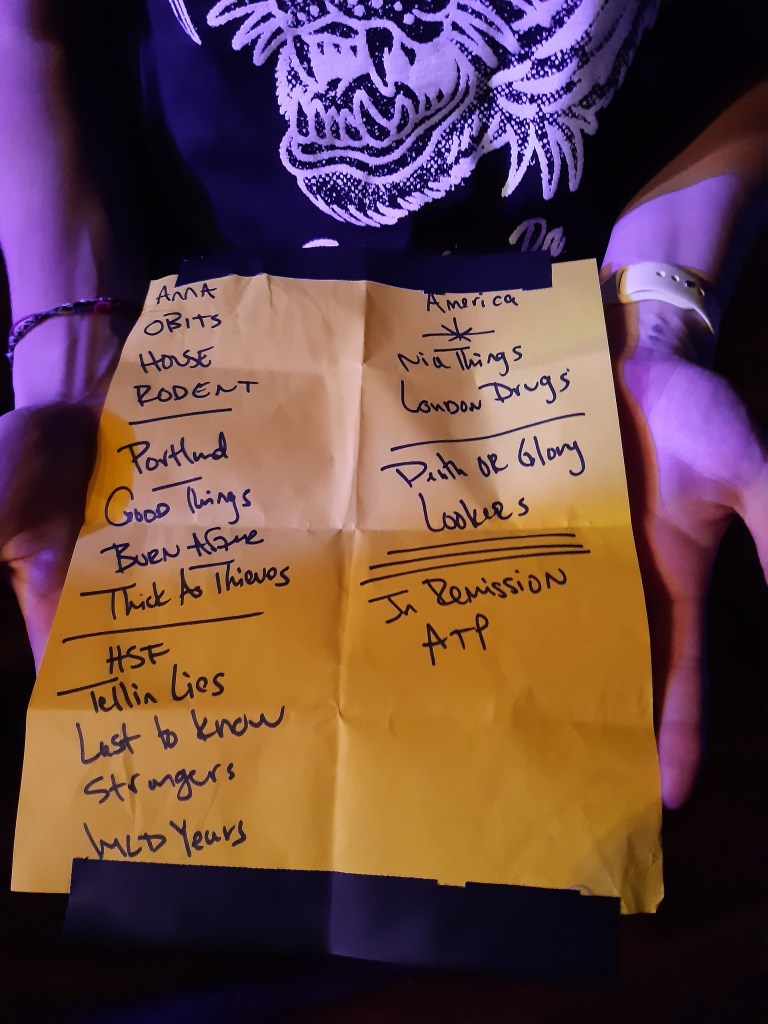 AMA
OBITS
HOUSE
RODENT
Portland
Good Things
BURN
Thick As Thieves
HSF
Tellin Lies
Last to know
Strangers
WLD Years
America
Nia Things
LONDON Drugs
Death OR Glory
Lookers
In Remission
ATP